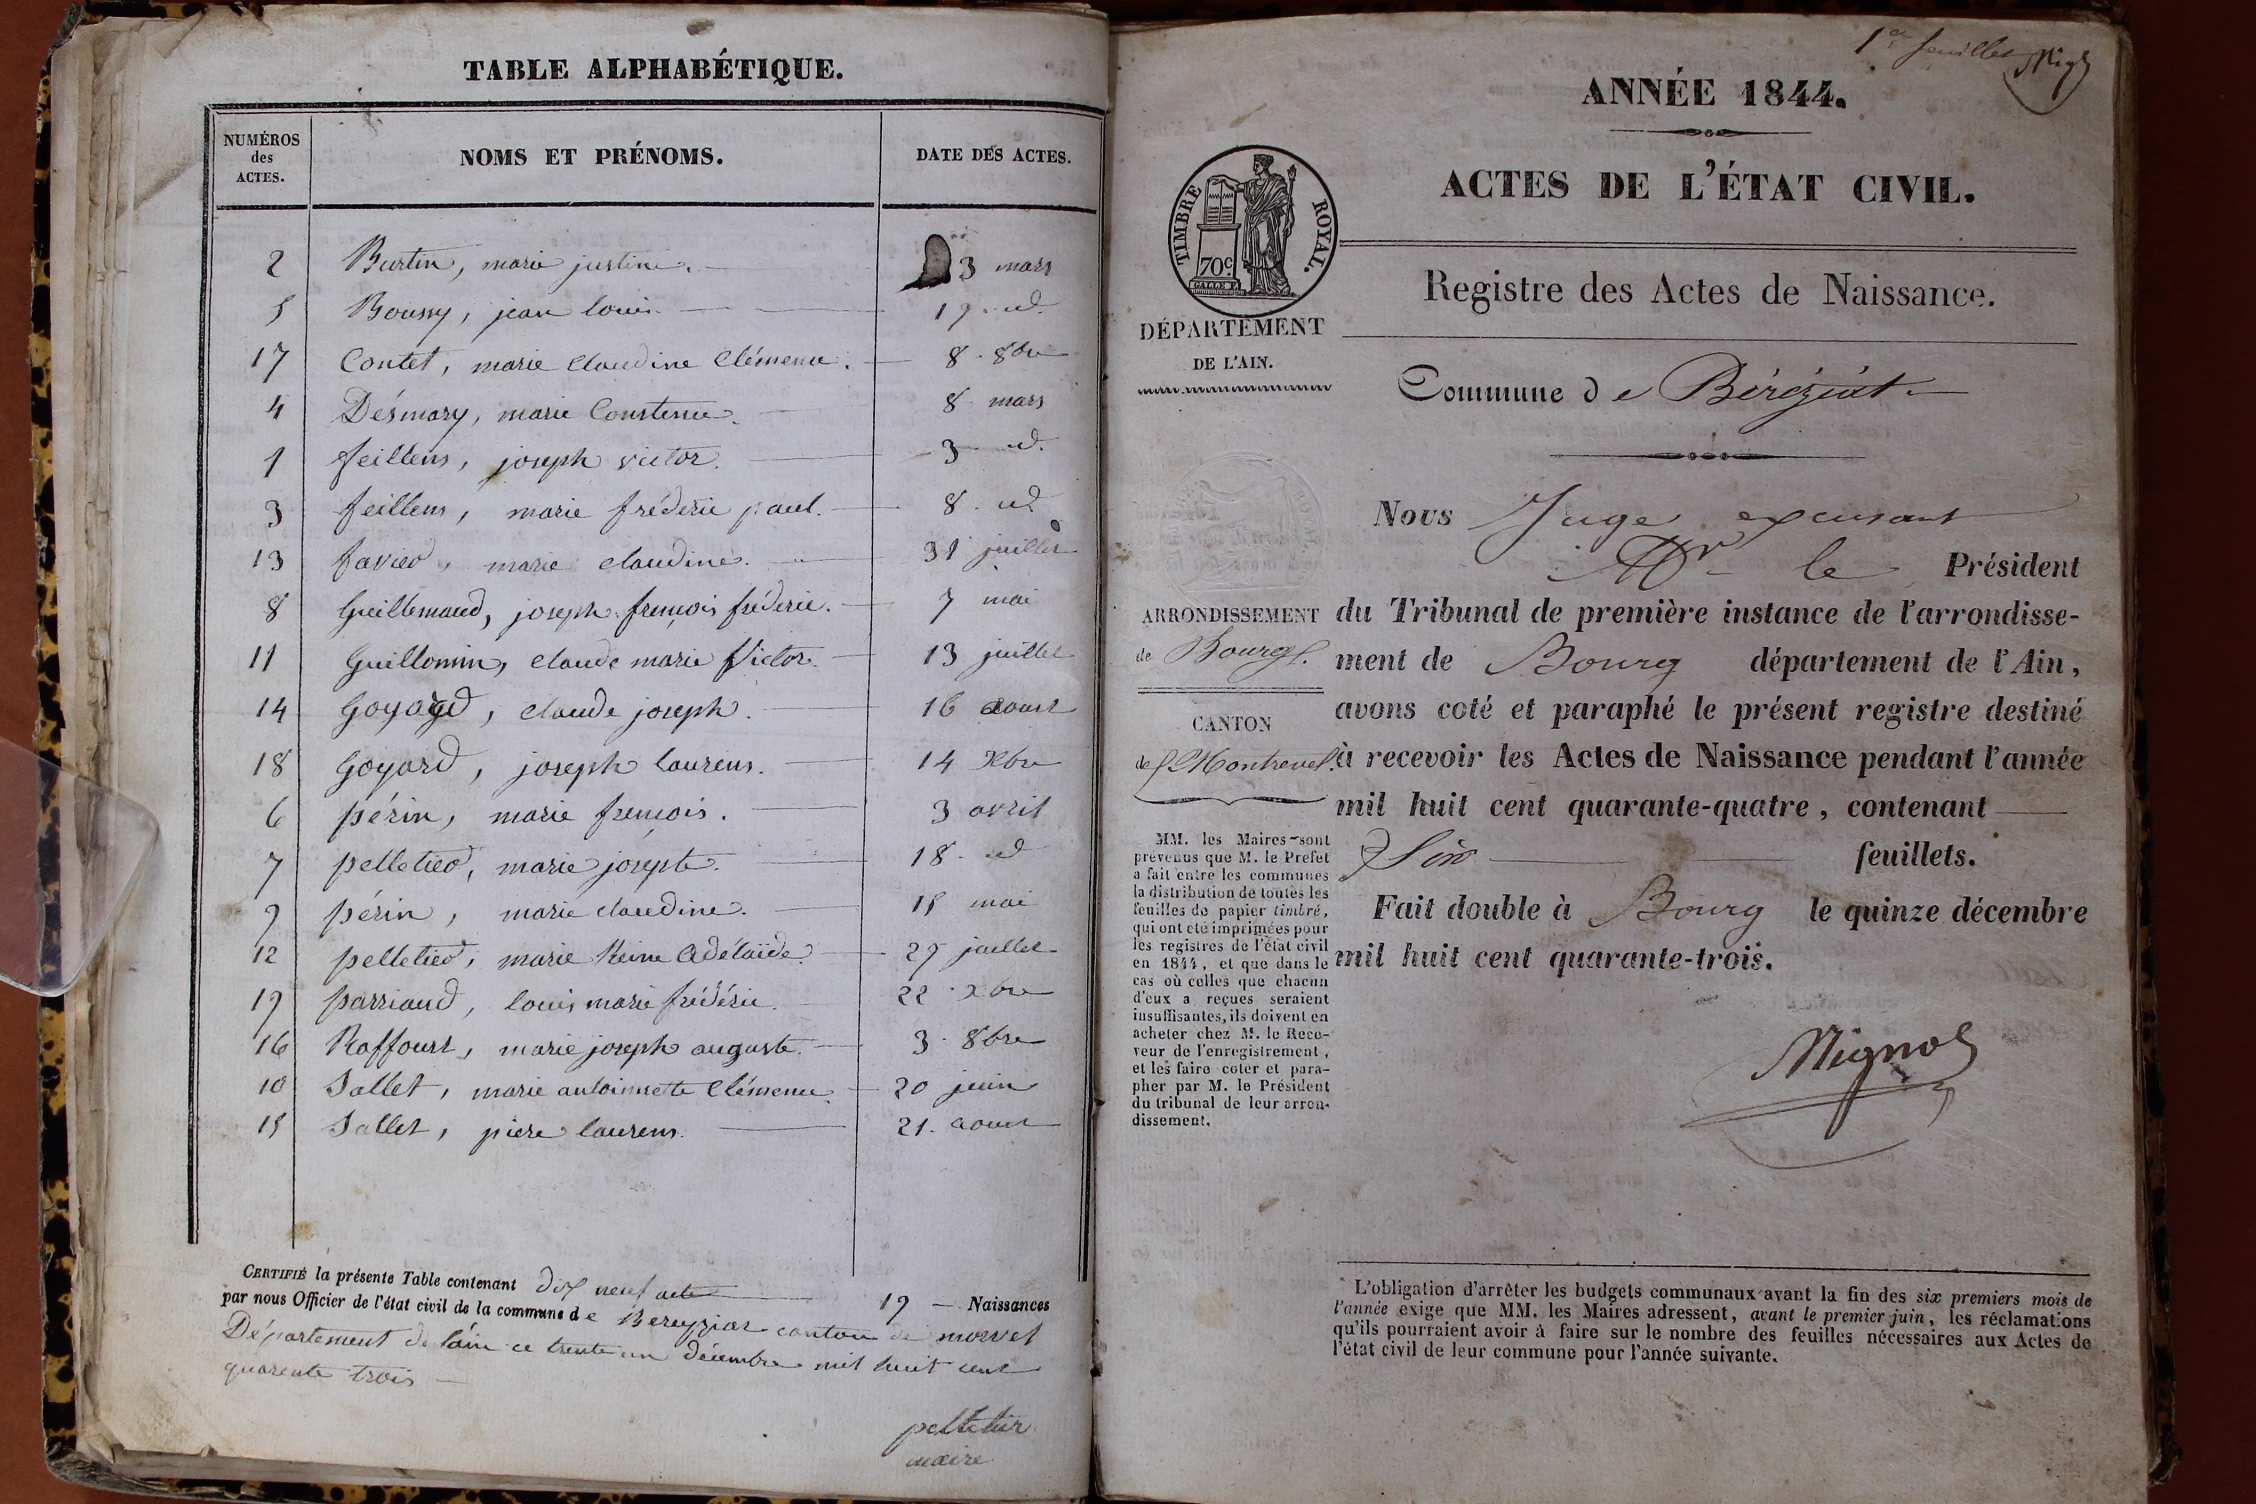 TABLE ALPHABÉTIQUE.
NUMÉROS des ACTES. NOMS ET PRÉNOMS. DATE DES ACTES.
2 Burtin, marie justine. 3 mars
5 Boussy, jean louis 19 id.
17 Contet, marie claudine Clémence. 8. 8bre
4 Désmary, marie Constence. 8 mars
1 feillens, joseph victor. 3 id.
3 feillens, marie fréderic paul. 8. id.
13 favier, marie claudine. 31 juillet
8 Guillemaud, joseph françois fréderic. 7 mai
11 Guillomin, claude marie Victor. 13 juillet
14 Goyard, claude joseph. 16 aoust
18 Goyard, joseph laurens. 14 Xbre
6 périn, marie françois. 3 avril
7 pelletier, marie josepte. 18. id
9 périn, marie claudine. 15 mai
12 pelletier, marie Reine Adélaïde. 29 juillet
19 parriaud, louis marie frédéric. 22 Xbre
16 Raffourt, marie joseph auguste. 3. 8bre
10 Sallet, marie antoinnette Clémence. 20 juin
15 Sallet, piere laurens. 21. aoust
CERTIFIÉ la présente Table contenant dix neuf acte 19 Naissances
par nous Officier de l'état civil de la commune de Bereyziat canton de
Département de l'ain ce trente un décembre mil huit cent
quarente trois
pelletier
maire
1er feuillet
ANNÉE 1844.
ACTES DE L'ÉTAT CIVIL.
TIMBRE ROYAL.
70c
Registre des Actes de Naissance.
DÉPARTEMENT
DE L'AIN.
Commune de Béréziat
Nous Juge excusant
Mr le Président
ARRONDISSEMENT
de Bourg.
CANTON
de Montrevel.
du Tribunal de première instance de l'arrondisse-
ment de Bourg département de l'Ain,
avons coté et paraphé le présent registre destiné
à recevoir les Actes de Naissance pendant l'année
mil huit cent quarante-quatre, contenant
feuillets.
Fait double à Bourg le quinze décembre
mil huit cent quarante-trois.
Mignot
MM. les Maires sont
prévenus que M. le Préfet
a fait entre les communes
la distribution de toutes les
feuilles de papier timbré,
qui ont été imprimées pour
les registres de l'état civil
en 1844, et que dans le
cas où celles que chacun
d'eux a reçues seraient
insuffisantes, ils doivent en
acheter chez M. le Rece-
veur de l'enregistrement,
et les faire coter et para-
pher par M. le Président
du tribunal de leur arron-
dissement.
L'obligation d'arrêter les budgets communaux avant la fin des six premiers mois de
l'année exige que MM. les Maires adressent, avant le premier juin, les réclamations
qu'ils pourraient avoir à faire sur le nombre des feuilles nécessaires aux Actes de
l'état civil de leur commune pour l'année suivante.